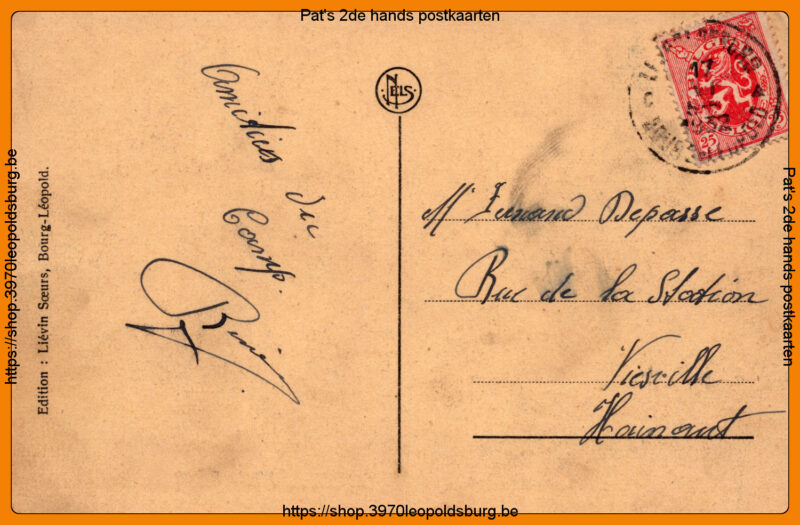 Pat's 2de hands postkaarten
https://shop.3970leopoldsburg.be
Edition : Liévin Sœurs, Bourg-Léopold.
Amitiés du
Camp.
NELS
17
25
Mr Fernand Depasse
Rue de la Station
Viesville
Hainaut
Pat's 2de hands postkaarten
https://shop.3970leopoldsburg.be